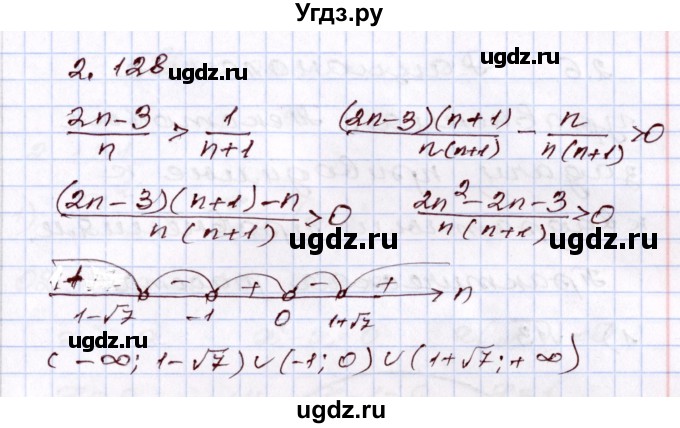 Угдз.ру
2. 128
ugdz.ru
ugdz.ru
(2n-3)/n > 1/(n+1)   (2n-3)(n+1)/n(n+1) - n/n(n+1) > 0
ugdz.ru
((2n-3)(n+1)-n)/n(n+1) > 0   (2n²-2n-3)/n(n+1) > 0
ugdz.ru
ugdz.ru
+ - + - + n
1-√7 -1 0 1+√7
(-∞; 1-√7) ∪ (-1; 0) ∪ (1+√7; +∞)
ugdz.ru
ugdz.ru